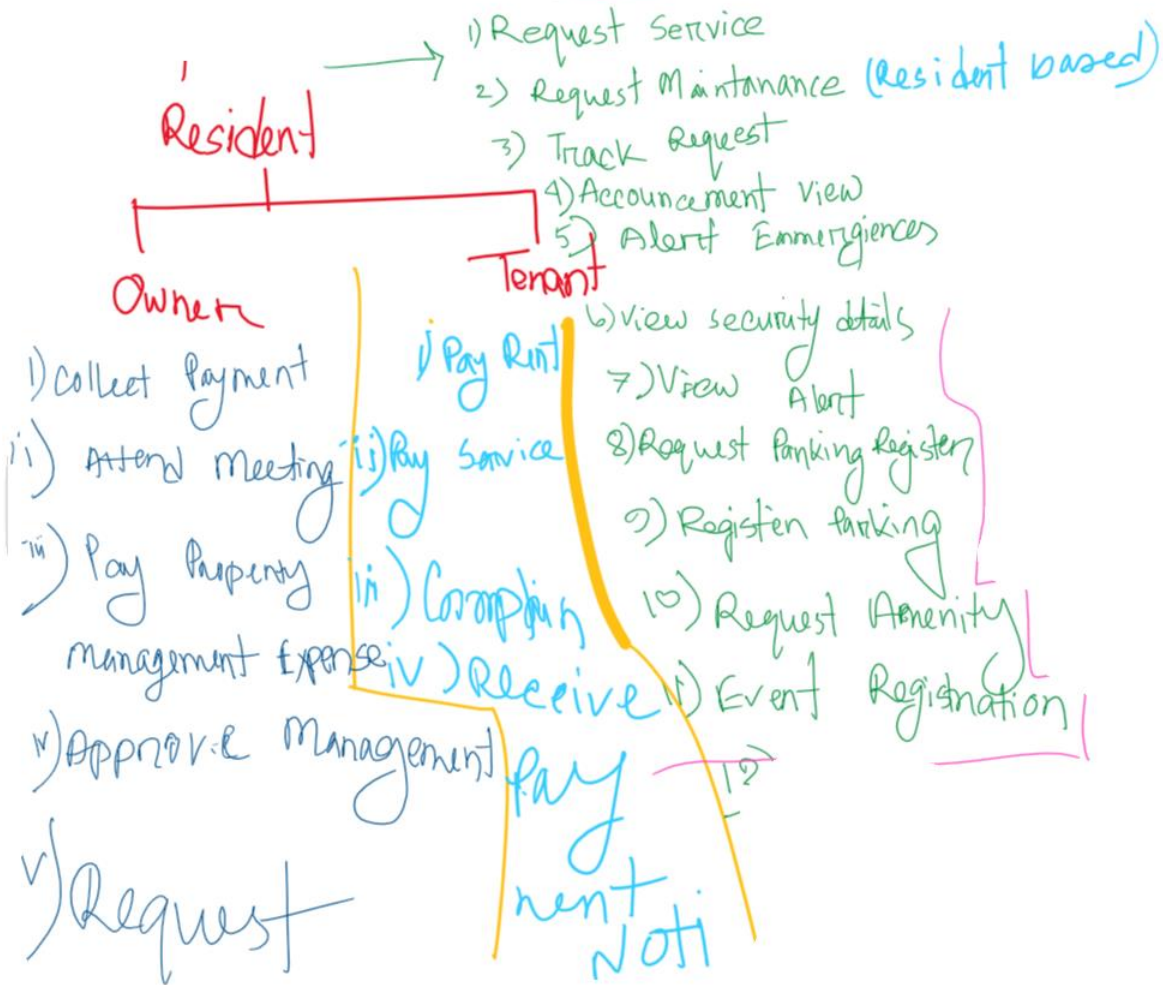 Resident
1) Request Service
2) Request Maintanance (Resident based)
3) Track Request
4) Accouncement View
5) Alert Emmergiences
6) View security details
7) View Alert
8) Request Parking Register
9) Register Parking
10) Request Amenity
11) Event Registration
12
Owner
i) Collect Payment
ii) Attend Meeting
iii) Pay Property
Management Expense
iv) Approve Management
v) Request
Tenant
i) Pay Rent
ii) Pay Service
iii) Complain
iv) Receive
Pay
ment
Noti